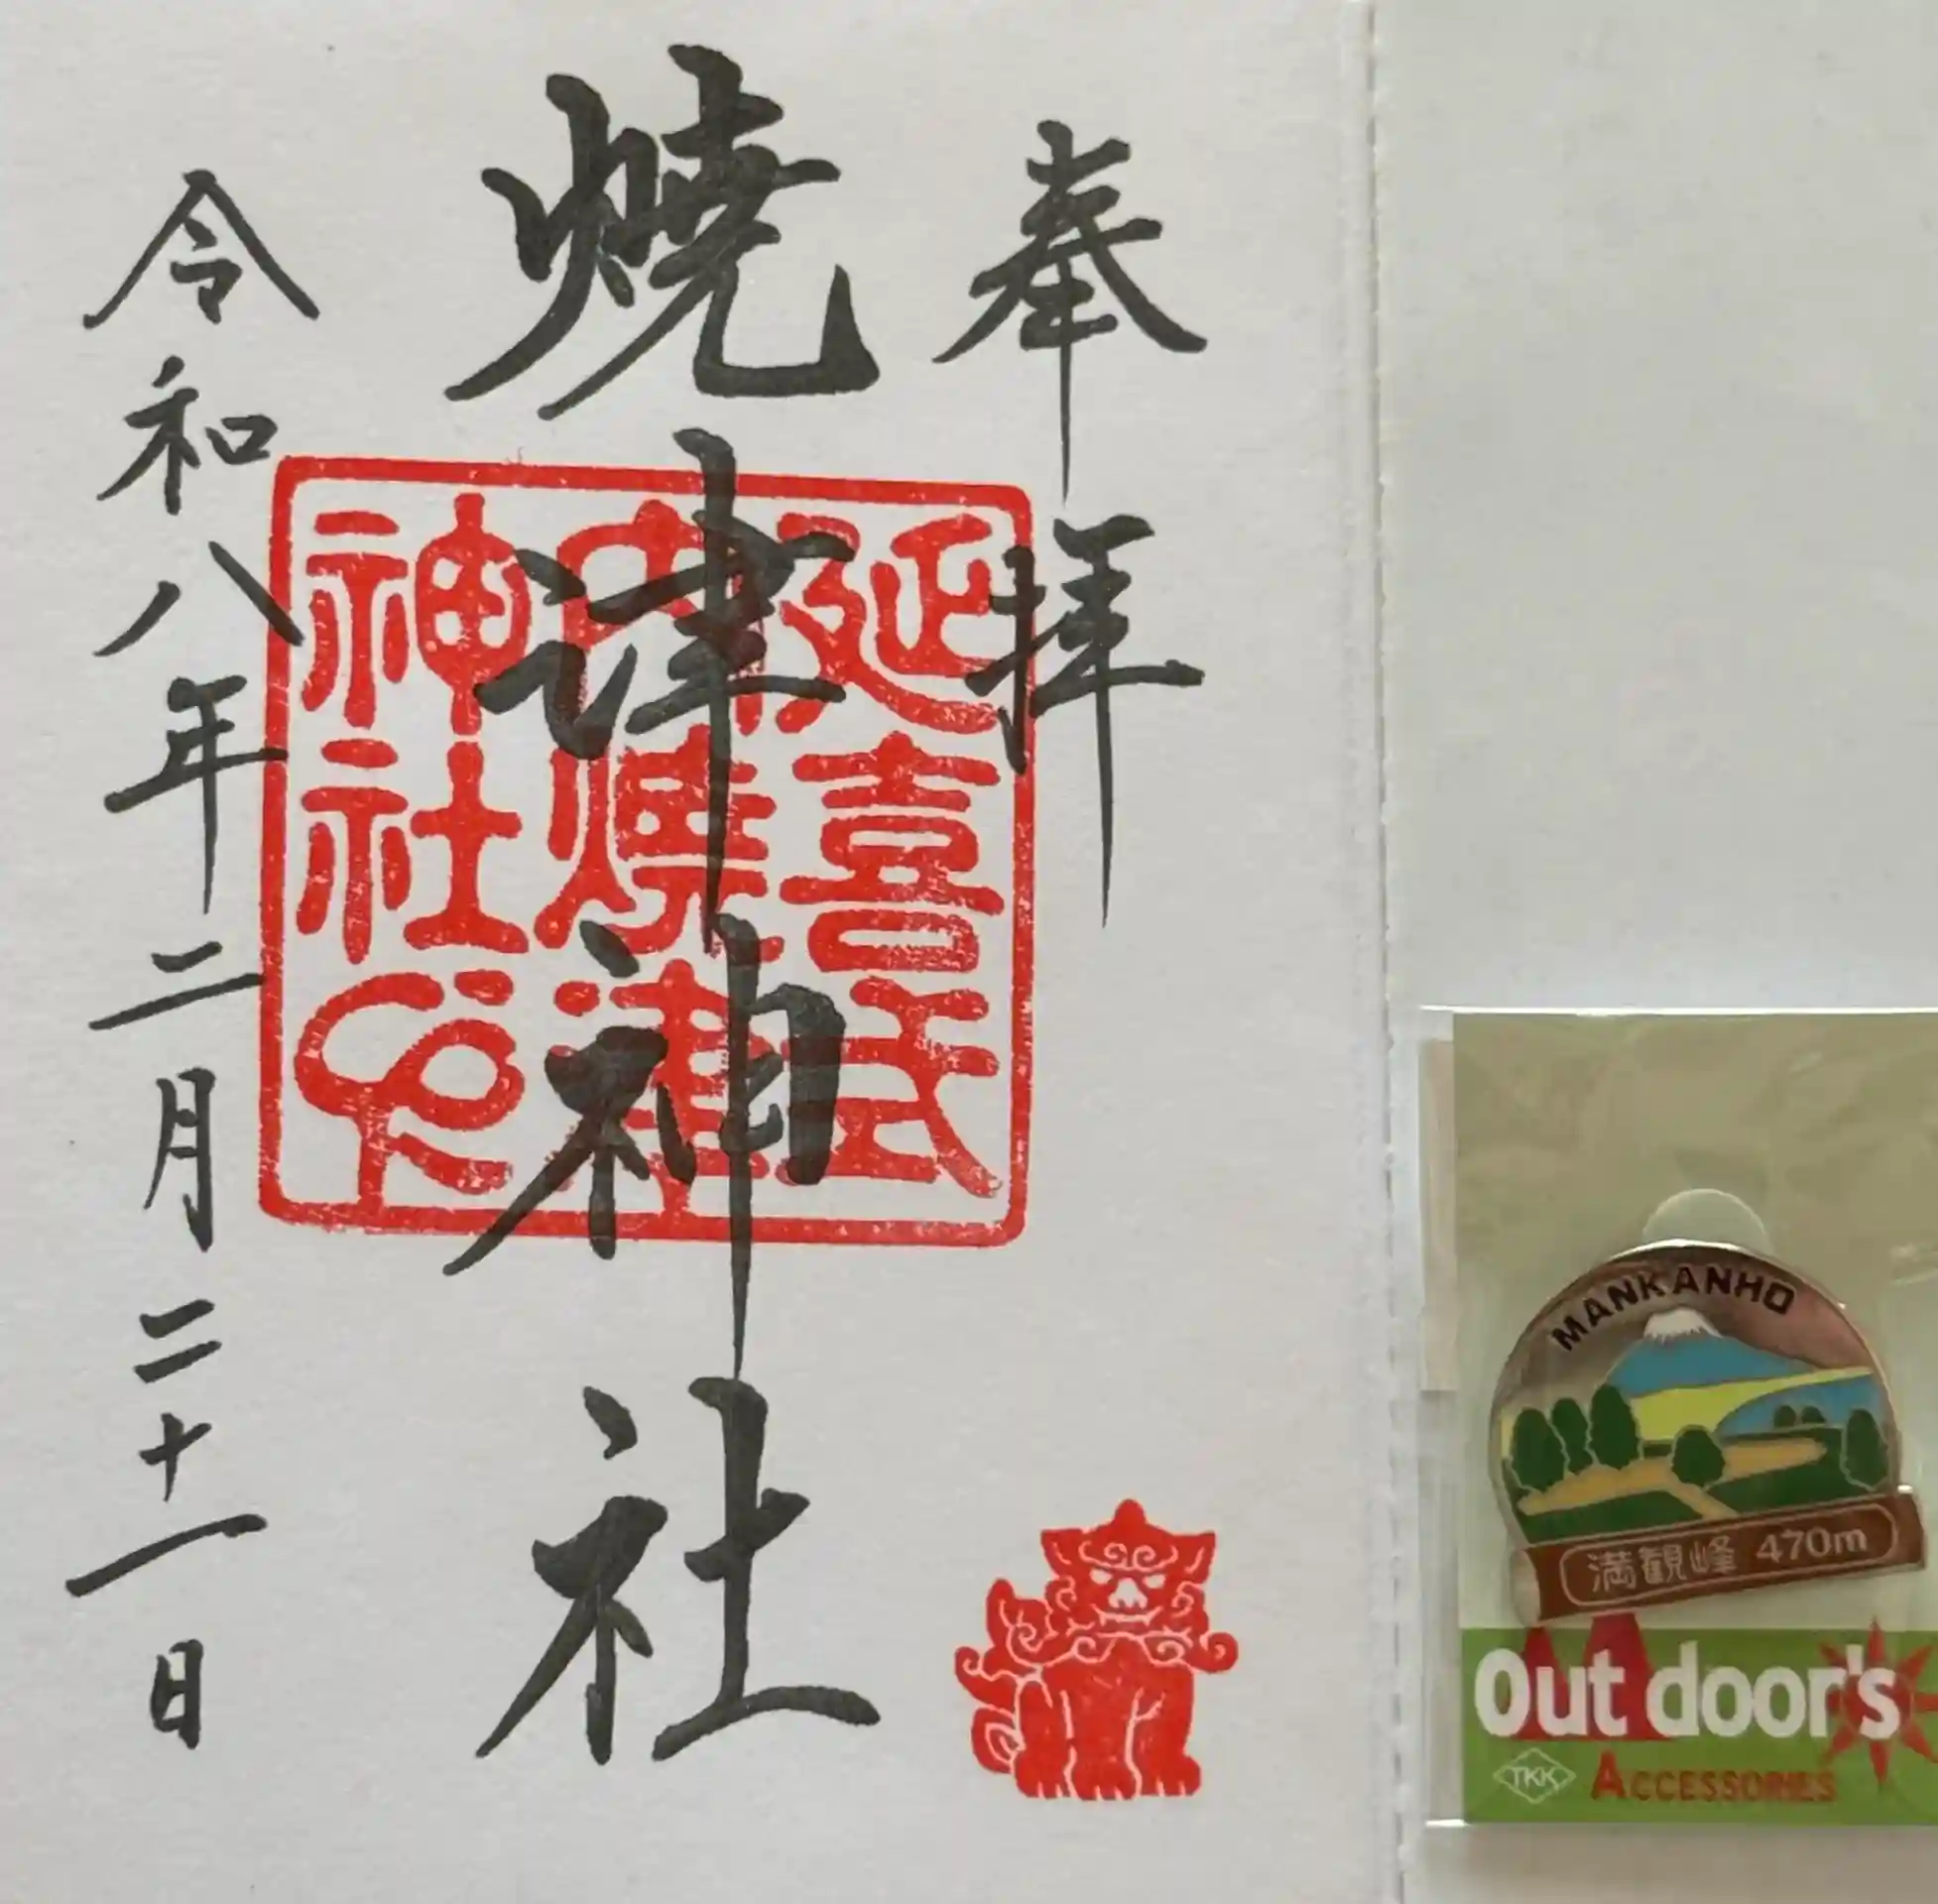 奉拝
焼津神社
延喜式
内焼津
神社印
令和八年二月二十一日
MANKANHO
満観峰 470m
Out door's
TKK
ACCESSORIES